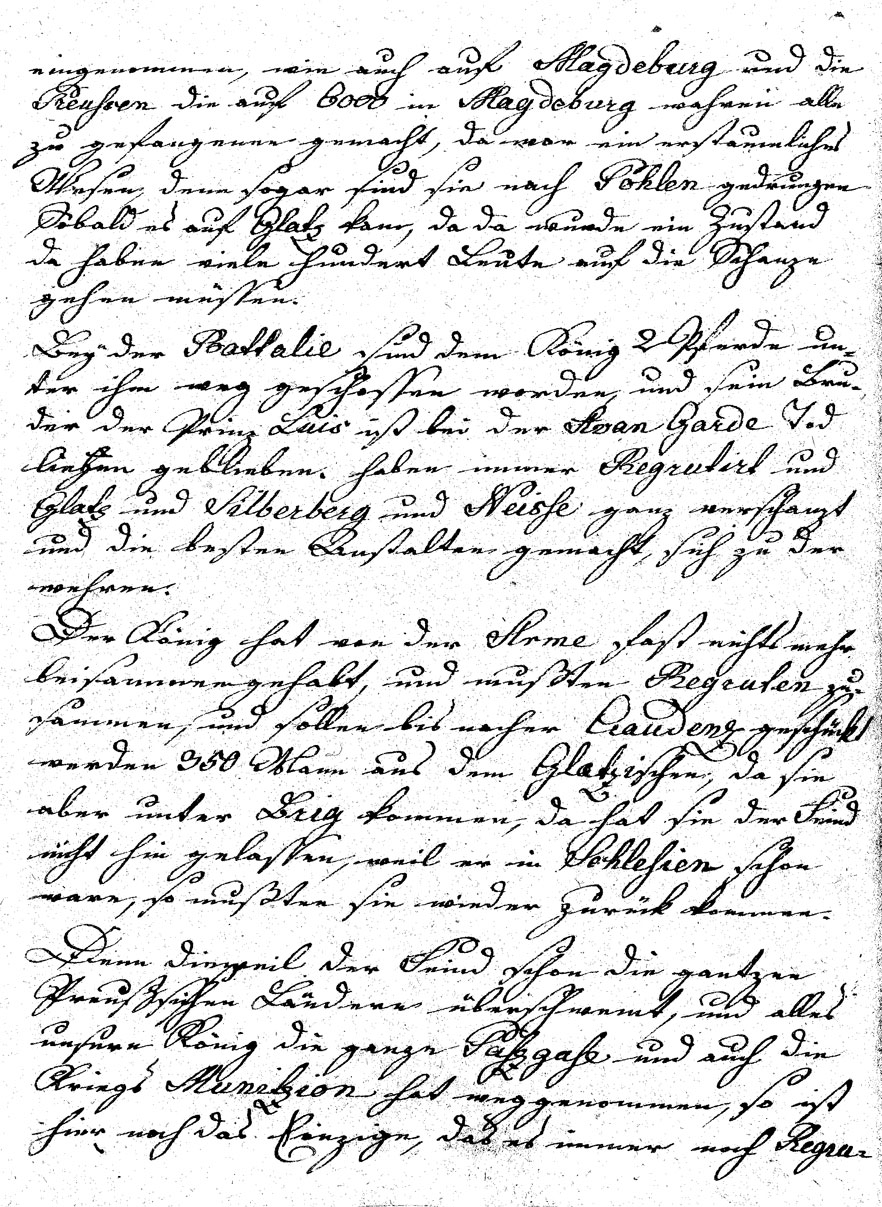 eingenommen, wie auch auf Magdeburg und die
Preussen die auf 6000 in Magdeburg wahren alle
zu gefangenen gemacht, da war ein erstaunliches
Wesen, denn sogar sind sie nach Pohlen gedrungen
Sobald es auf Glatz kam, da da wurde ein Zustand
da haben viele hundert Leute auf die Schanze
gehen müssen.
Bey der Battalie sind dem König 2 Pferde un-
ter ihm weg geschossen worden, und sein Bru-
der der Prinz Luis ist bei der Avan Garde Tod
liehen geblieben. haben immer Regrutirt und
Glatz und Silberberg und Neisse ganz verschanzt
und die besten Anstalten gemacht, sich zu der
wehren.
Der König hat von der Arme fast nichts mehr
beisammen gehabt, und mußten Regruten zu-
sammen, und sollen bis nacher Graudenz geschückt
werden 350 Mann aus dem Glatzischen, da sie
aber unter Brig kommen, da hat sie der Feind
nicht hin gelassen, weil er in Schlesien schon
ware, so mußten sie wieder zurük kommen.
Denn dieweil der Feind schon die gantzen
Preußsichen Ländern überschwemt, und alles
unsern König die ganze und auch die
Kriegs Munitzion hat weggenommen, so ist
hier noch das Einzige, das es immer noch Regru-